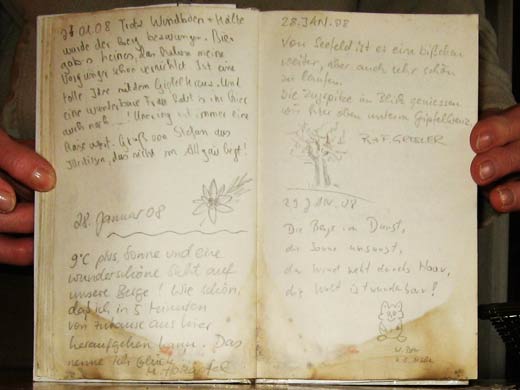 27.01.08 Trotz Windböen + Kälte
wurde der Berg bezwungen. Bier
gab's keines, das haben meine
Vorgänger schon vernichtet. Ist eine
tolle Idee mit dem Gipfelkreuz. Und
eine wunderbare Frau
auch noch ...! ist immer eine
Reise wert. Gruß von Stefan aus
das nicht im Allgäu liegt!
28. Januar 08
9°C plus, Sonne und eine
wunderschöne Sicht auf
unsere Berge! Wie schön,
daß ich in 5 Minuten
von Zuhause aus hier
heraufgehen kann. Das
nenne ich Glück!
28. JAN. 08
Von Seefeld ist es ein bißchen
weiter, aber auch sehr schön
zu laufen.
Die Zugspitze im Blick genießen
wir hier oben unterm Gipfelkreuz
R+F. GEISLER
29 JAN. 08
Die Berge im Dunst,
die Sonne umsorgt,
der Wind weht durchs Haar,
die Welt ist wunderbar!